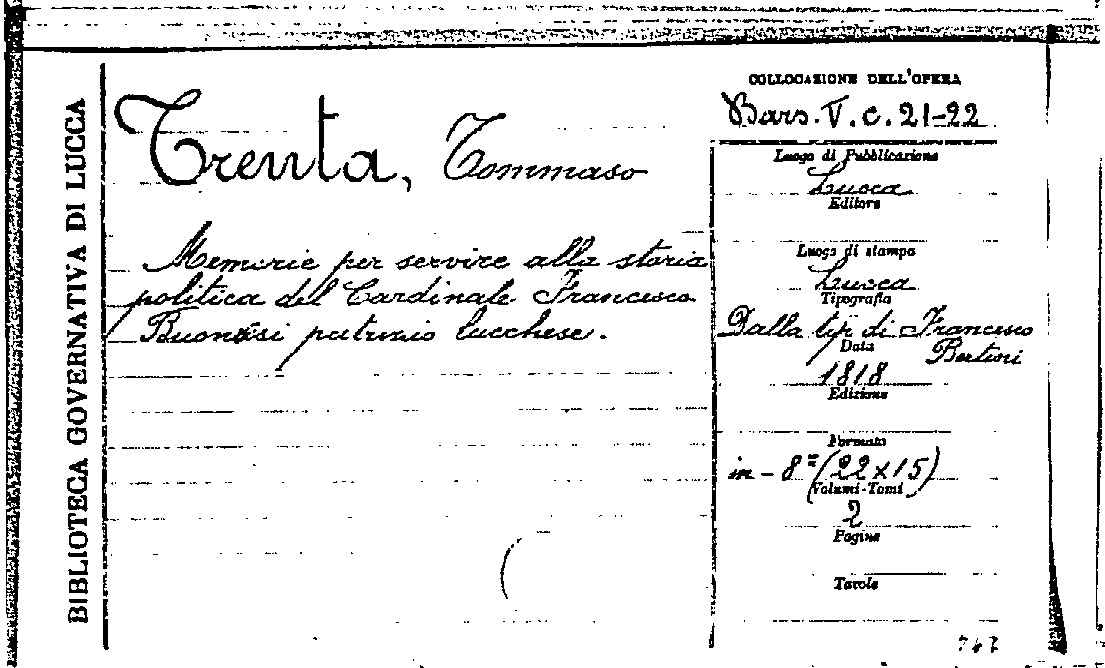 BIBLIOTECA GOVERNATIVA DI LUCCA
Trenta, Tommaso
Memorie per servire alla storia
politica del Cardinale Francesco
Buonvisi patrizio lucchese.
COLLOCAZIONE DELL'OPERA
Bars. V. c. 21-22
Luogo di Pubblicazione
Lucca
Editore
Luogo di stampa
Lucca
Tipografia
Dalla tip. di Francesco
Bertini
Data
1818
Edizione
Formato
in-8º (22x15)
Volumi-Tomi
2
Pagine
Tavole